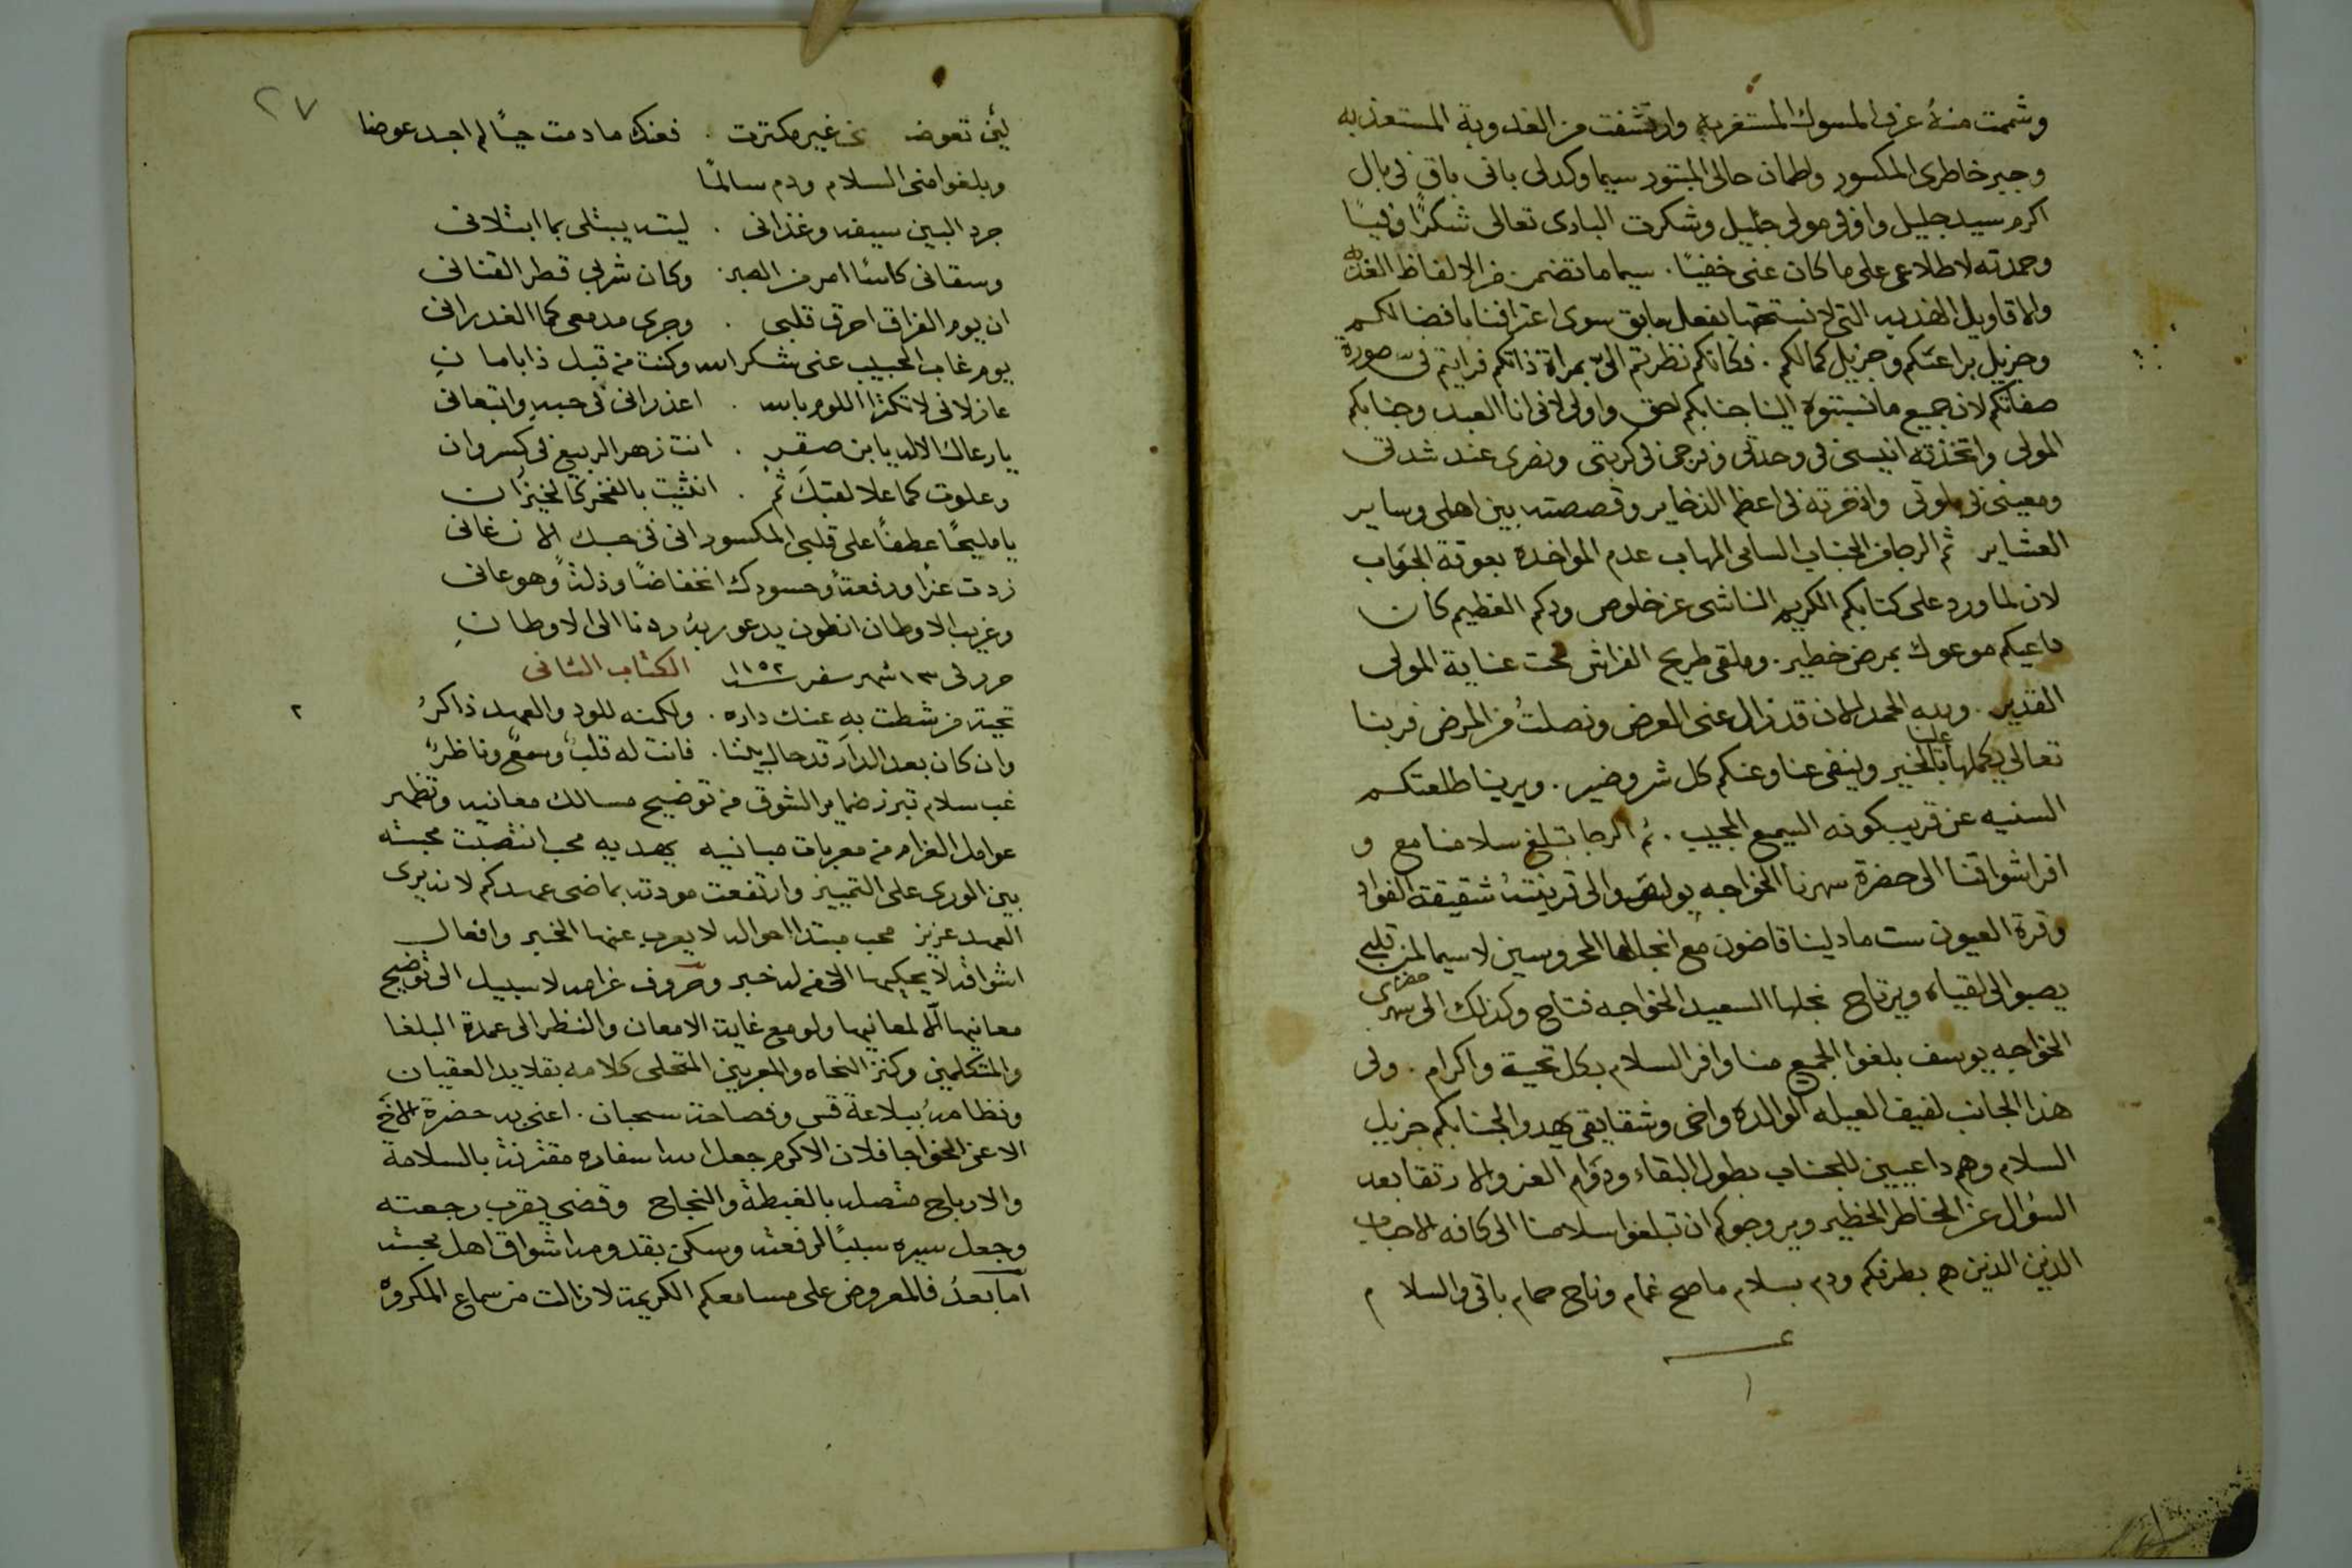 وشممت منهُ عرف المسوك المستغربه وارتشفت من العذوبة المستعذبه
وجبر خاطرى المكسور واطمان حالى المبتور سيما وكدلى بانى باقٍ فى بال
اكرم سيد جليل واوفى مولى جليل وشكرت البارى تعالى شكرًا وفيًا
وحمدته لاطلاعى على ما كان عنى خفيًا . سيما ما تضمن من الالفاظ الغذبه
والاقاويل الهذبه التى لا نستحقها بفعل سابق سوى اعترافنا بافضالكم
وجزيل براعتكم وجزيل كمالكم . فكانكم نظرتم الىّ بمراة ذاتكم فرايتم فىّ صورة
صفاتكم لان جميع ما نسبتوه الينا جنابكم احق واولى لانى انا العبد وجنابكم
المولى واتخذته انيسى فى وحدتى وفرجى فى كربتى ونصرى عند شدتى
ومعينى فى بلوتى واذخرته فى اعظم الذخاير وقصصته بين اهلى وساير
العشاير ثم الرجا من الجناب السامى المهاب عدم المواخذه بعوقة الجواب
لان لما ورد على كتابكم الكريم الناشى عن خلوص ودكم العظيم كان
داعيكم موعوك بمرض خطير . وملقى طريح الفراش تحت عناية المولى
القدير . ولله الحمد الان قد زال عنى العرض ونصلتُ من المرض فربنا
تعالى يكملها علينا بالخير وينفى عنا وعنكم كل شر وضير . ويرينا طلعتكم
السنيه عن قريب كونه السميع المجيب . ثم الرجا تبلغ سلامنا مع و
افر اشواقنا الى حضرة سهرنا الخواجه بولص والى قرينتهُ شقيقة الفواد
وقرة العيون ست مادلينا قاضون مع انجالها المحروسين لاسيما لمن قلبى
يصبوا الى لقياه ويرتاح نجلها السعيد الخواجه فتاح وكذلك الى حضرة سهرى
الخواجه يوسف بلغوا الجميع منا وافر السلام بكل تحية واكرام . ولى
هذا الجانب لفيف العيله الوالده واخى وشقايقى يهدوا لجنابكم جزيل
السلام وهم داعيين للجناب بطول البقاء ودوام العز والارتقا بعد
السؤال عن الخاطر الخطير ويرجوكم ان تبلغوا سلامنا الى كافه الاحباب
الذين الذين هم بطرفكم ودم بسلام ما صح غمام وناح حمام باقى والسلام
١
٢٧
لين تعوضه عن غير مكترت . فعنك ما دمت حيًا لم اجد عوضا
وبلغوا منى السلام ودم سالمًا
جرد البين سيفه وغذانى . ليته يبتلى بما ابتلانى
وسقانى كاسًا امر من الصبر وكان شربى قطر القنانى
ان يوم الفراق احرق قلبى . وجرى مدمعى كما الغدرانى
يوم غاب الحبيب عنى شكر الله وكنت من قبل ذا بامانِ
عازلانى لا تكثرا اللوم بالله . اعذرانى فى حبيه واتبعانى
يا رعاك الاله يا بن صقرٍ . انت زهر الربيع فى كسروان
وعلوت كما علا لقبك ثم . انثنيت بالفخر كالخيزران
يا مليحًا عطفًا على قلبى المكسور انى فى حبك الان غانى
زدت عزا ورفعةً وحسودك انخفاضًا وذلةً وهو عانى
وغريب الاوطان انطون يدعو ربهُ ردنا الى الاوطانِ
حرر فى ١٣ شهر سفر سنة ١١٥٢ الكتاب الثانى
٢
تحية من شطت به عنك داره . ولكنه للود والعهد ذاكرُ
وان كان بعد الدار قد حال بيننا . فانت له قلبٌ وسمعٌ وناظرُ
غب سلام تبرز ضماير الشوق من توضيح مسالك معانيه وتظهر
عوامل الغرام من معربات مبانيه يهديه محب انتصبت محبته
بين الورى على التمييز وارتفعت مودته بماضى عهدكم لانه يرى
العهد عزيز محب مبتدا احواله لا يعرب عنها الخبر وافعال
اشواقه لا يحكيها الا من له خبر وحروف غرامه لا سبيل الى توضيح
معانيها الا لمعانيها ولو مع غاية الامعان والنظر الى عمدة البلغا
والمتكلمين وكنز النحاه والمعربين المتحلى كلامه بقلايد العقيان
ونظامهُ ببلاغة قس وفصاحة سحبان . اعنى به حضرة الاخ
الاعز الخواجا فلان الاكرم جعل الله اسفاره مقترنة بالسلامة
والارباح متصله بالغبطة والنجاح وقضى بقرب رجعته
وجعل سيره سببًا لرفعته وسكن بقدومه اشواق اهل محبته
اما بعدُ فالمعروض على مسامعكم الكريمة لا زالت من سماع المكروه